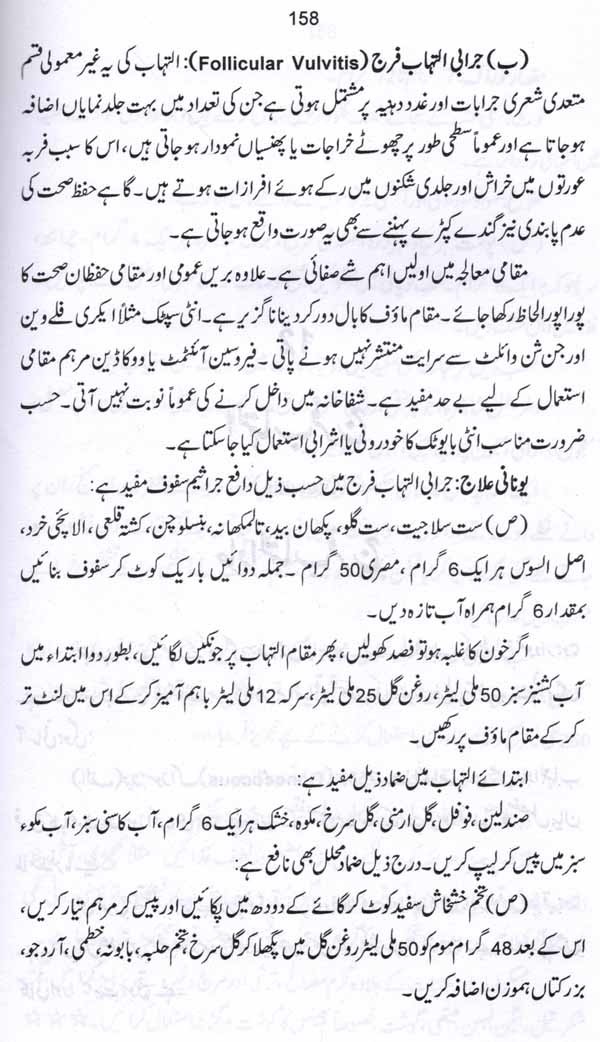 158
(ب) جرابی التہاب فرج (Follicular Vulvitis): التہاب کی یہ غیر معمولی قسم
متعدی شعری جرابات اور غدد دہنیہ پر مشتمل ہوتی ہے جن کی تعداد میں بہت جلد نمایاں اضافہ
ہوجاتا ہے اور عموماً سطحی طور پر چھوٹے خراجات یا پھنسیاں نمودار ہو جاتی ہیں، اس کا سبب فربہ
عورتوں میں خراش اور جلدی شکنوں میں رکے ہوئے افرازات ہوتے ہیں۔ گاہے حفظ صحت کی
عدم پابندی نیز گندے کپڑے پہننے سے بھی یہ صورت واقع ہو جاتی ہے۔
مقامی معالجہ میں اولیں اہم شے صفائی ہے۔ علاوہ بریں عمومی اور مقامی حفظان صحت کا
پورا پورا لحاظ رکھا جائے۔ مقام ماؤف کا بال دور کر دینا ناگزیر ہے۔ انٹی سپٹک مثلاً ایکری فلے وین
اور جن شن وائلٹ سے سرایت منتشر نہیں ہونے پاتی۔ فیروسین آئنٹمنٹ یا ووکاڈین مرہم مقامی
استعمال کے لیے بے حد مفید ہے۔ شفاخانہ میں داخل کرنے کی عموماً نوبت نہیں آتی۔ حسب
ضرورت مناسب انٹی بایوٹک کا خوردونی یا اشرابی استعمال کیا جاسکتا ہے۔
یونانی علاج: جرابی التہاب فرج میں حسب ذیل دافع جراثیم سفوف مفید ہے:
(ص) ست سلاجیت، ست گلو، پکھان بید، تالمکھانہ، بنسلوچن، کشتہ قلعی، الائچی خرد،
اصل السوس ہر ایک 6 گرام، مصری 50 گرام۔ جملہ دوائیں باریک کوٹ کر سفوف بنائیں
بمقدار 6 گرام ہمراہ آب تازہ دیں۔
اگر خون کا غلبہ ہو تو فصد کھولیں، پھر مقام التہاب پر جونکیں لگائیں، بطور دوا ابتداء میں
آب کشنیز سبز 50 ملی لیٹر، روغن گل 25 ملی لیٹر، سرکہ 12 ملی لیٹر باہم آمیز کر کے اس میں لنٹ تر
کر کے مقام ماؤف پر رکھیں۔
ابتدائے التہاب میں ضماد ذیل مفید ہے:
صندلین، فوفل، گل ارمنی، گل سرخ، مکوہ، خشک ہر ایک 6 گرام، آب کاسنی سبز، آب مکوء
سبز میں پیس کر لیپ کریں۔ درج ذیل ضماد محلل بھی نافع ہے:
(ص) تخم خشخاش سفید کوٹ کر گائے کے دودھ میں پکائیں اور پیس کر مرہم تیار کریں،
اس کے بعد 48 گرام موم کو 50 ملی لیٹر روغن گل میں پگھلا کر گل سرخ، تخم حلبہ، بابونہ، خطمی، آرد جو،
بزر کتاں ہموزن اضافہ کریں۔